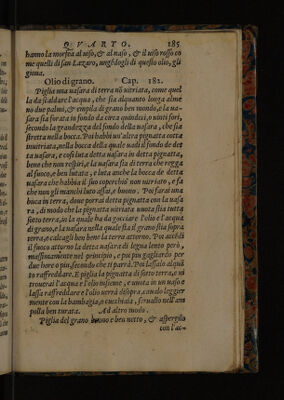 QVARTO. 285
hanno la morfea al uiso, & al naso, & il uiso rosso co
me quelli di san Lazaro, unghdogli di questo olio, gli
gioua.
Olio di grano. Cap. 182.
Piglia una uasara di terra nō uitriata, come quel
la da scaldare l'acqua, che sia alquanto longa alme
no due palmi, & empila di gran ben mondo, e la ua-
sara sia forata in fondo da circa quindeci, o uinti fori,
secondo la grandezza del fondo della uasara, che sia
stretta nella bocca. Poi habbi un'altra pignatta cotta
inuitriata, nella bocca della quale uadi il fondo de det
ta uasara, e cosi luta detta uasara in detta pignatta,
bene che non respiri, e la uasara sia di terra che regga
al fuoco, e ben lutata, e luta anche la bocca de detta
uasara che habbia il suo coperchio non uitriato, e fa
che non gli manchi luto assai, e buono. Poi farai una
buca in terra, doue porrai detta pignatta con la uasa
ra, di modo che la pignatta uitriata uuota stia tutta
sotto terra, in la quale ha da gocciare l'olio e l'acqua
di grano, e la uasara nella quale sta il grano stia sopra
terra, e calcagli ben bene la terra attorno. Poi accēdi
il fuoco attorno la detta uasara di legna lento però,
massimamente nel principio, e poi piu gagliardo per
due hore o piu, secondo che ti parrà. Poi lassalo al quā
to raffreddare. E piglia la pignatta di sotto terra, e ui
trouerai l'acqua e l'olio insieme, e uuota in un uaso e
lassa raffreddare e l'olio uerrà disopra, cauolo leggier
mente con la bambagia, o cucchiaia, serualo nell'am
polla ben turata. Ad altro modo.
Piglia del grano buono e ben netto, & aspergilo
con l'ac-